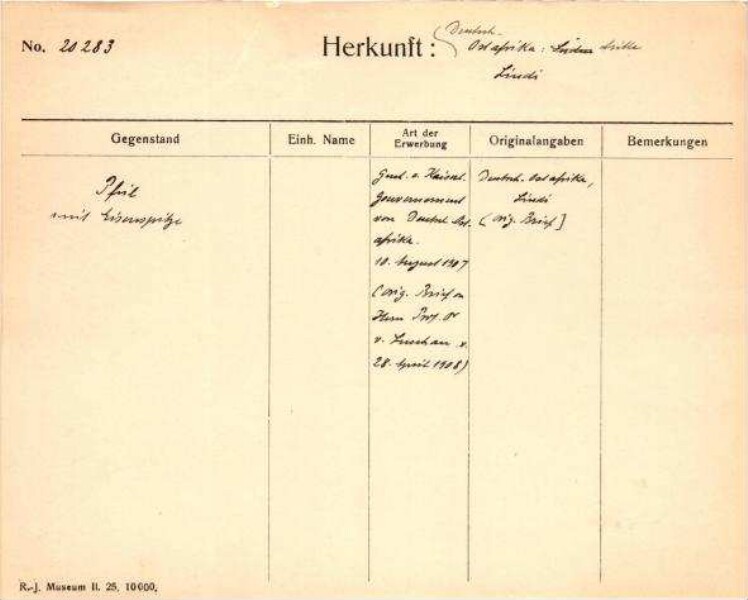 No. 20283
Herkunft: Deutsch-
Ostafrika: Afrika
Lindi
Gegenstand
Einh. Name
Art der
Erwerbung
Originalangaben
Bemerkungen
Pfeil
mit Eisenspitze
v. Kaiserl.
Gouvernement
von Deutsch Ost-
afrika.
10. August 1907
(orig. Brief an
Herrn Prof. Dr
v. Luschan v.
28. April 1908)
Deutsch. Ostafrika,
Lindi
(orig. Brief]
R.-J. Museum II. 25. 10000.